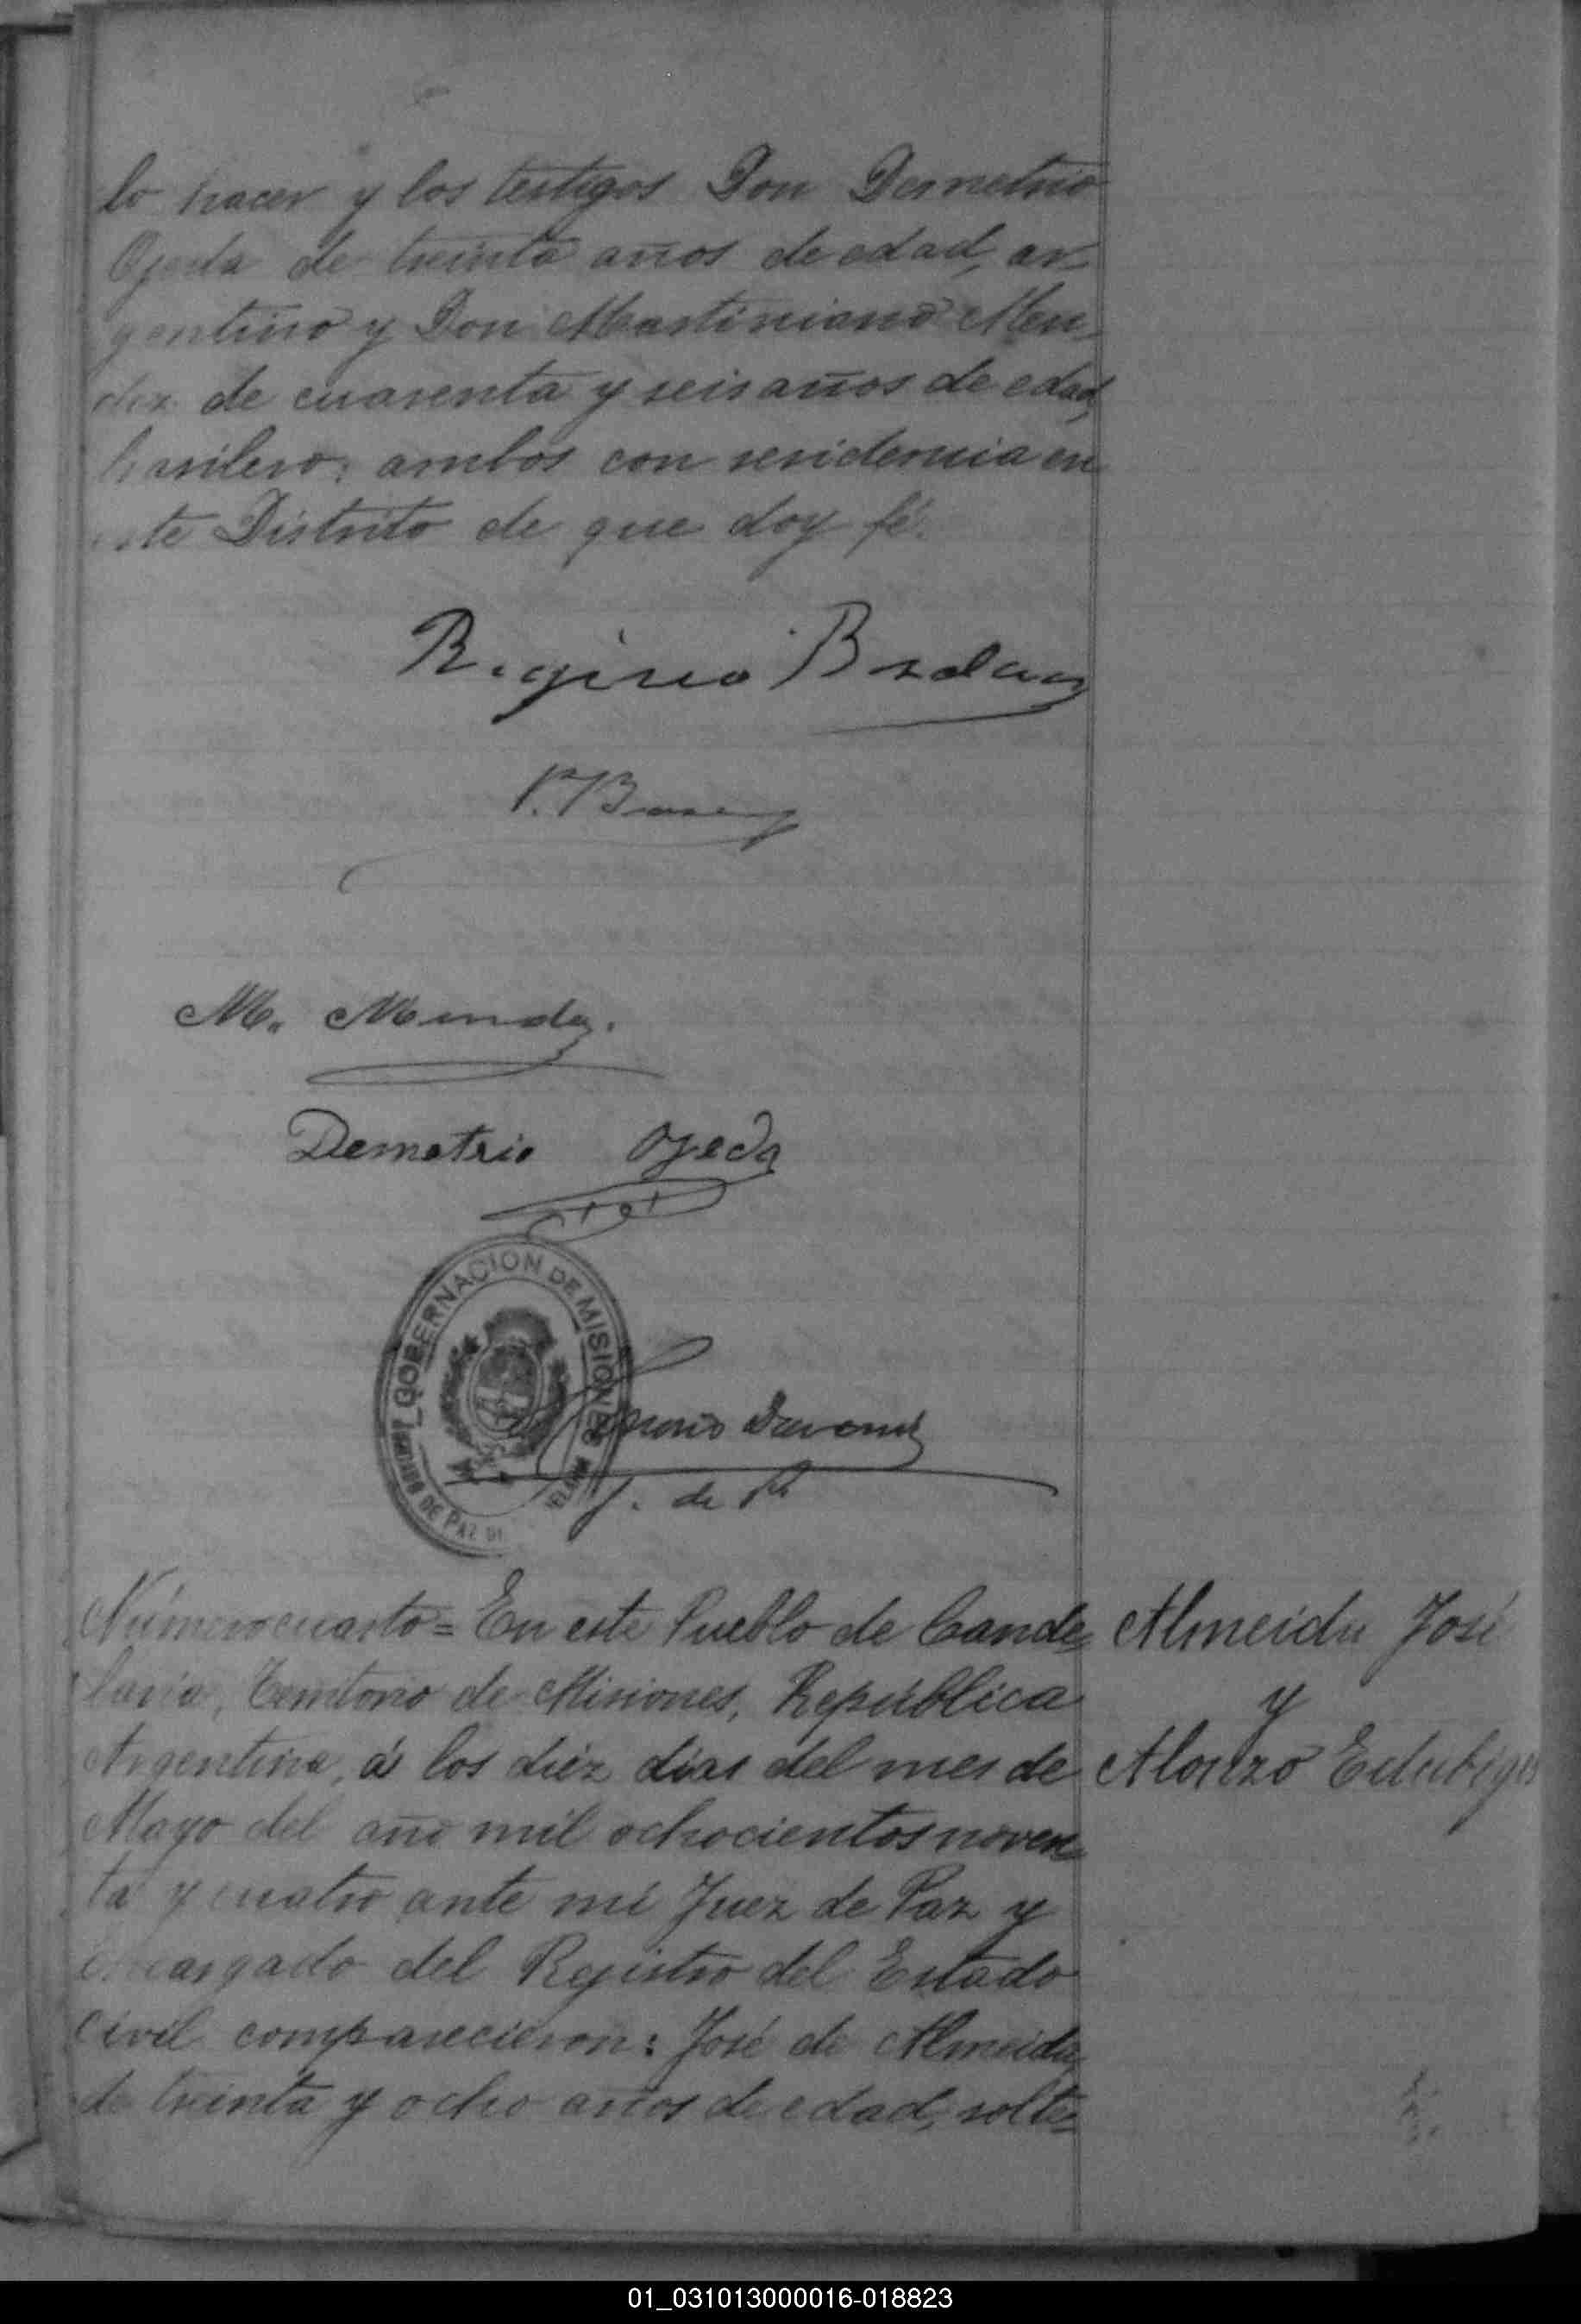 lo hacer y los testigos Don Demetrio
Ojeda de treinta años de edad, ar-
gentino y Don Martiniano Men-
dez de cuarenta y seis años de edad,
brasilero, ambos con residencia en
este Distrito de que doy fé.
M. Mendez.
Demetrio Ojeda
GOBERNACION DE MISIONES
JUZGADO DE PAZ DE
J. de P.
Número cuarto = En este Pueblo de Cande- Almeida José
laria, Territorio de Misiones, República y
Argentina, á los diéz dias del mes de Alonzo Edubiges
Mayo del año mil ochocientos noven-
ta y cuatro ante mi Juez de Paz y
encargado del Registro del Estado
Civil comparecieron: José de Almeida,
de treinta y ocho años de edad, solte-
01_031013000016-018823